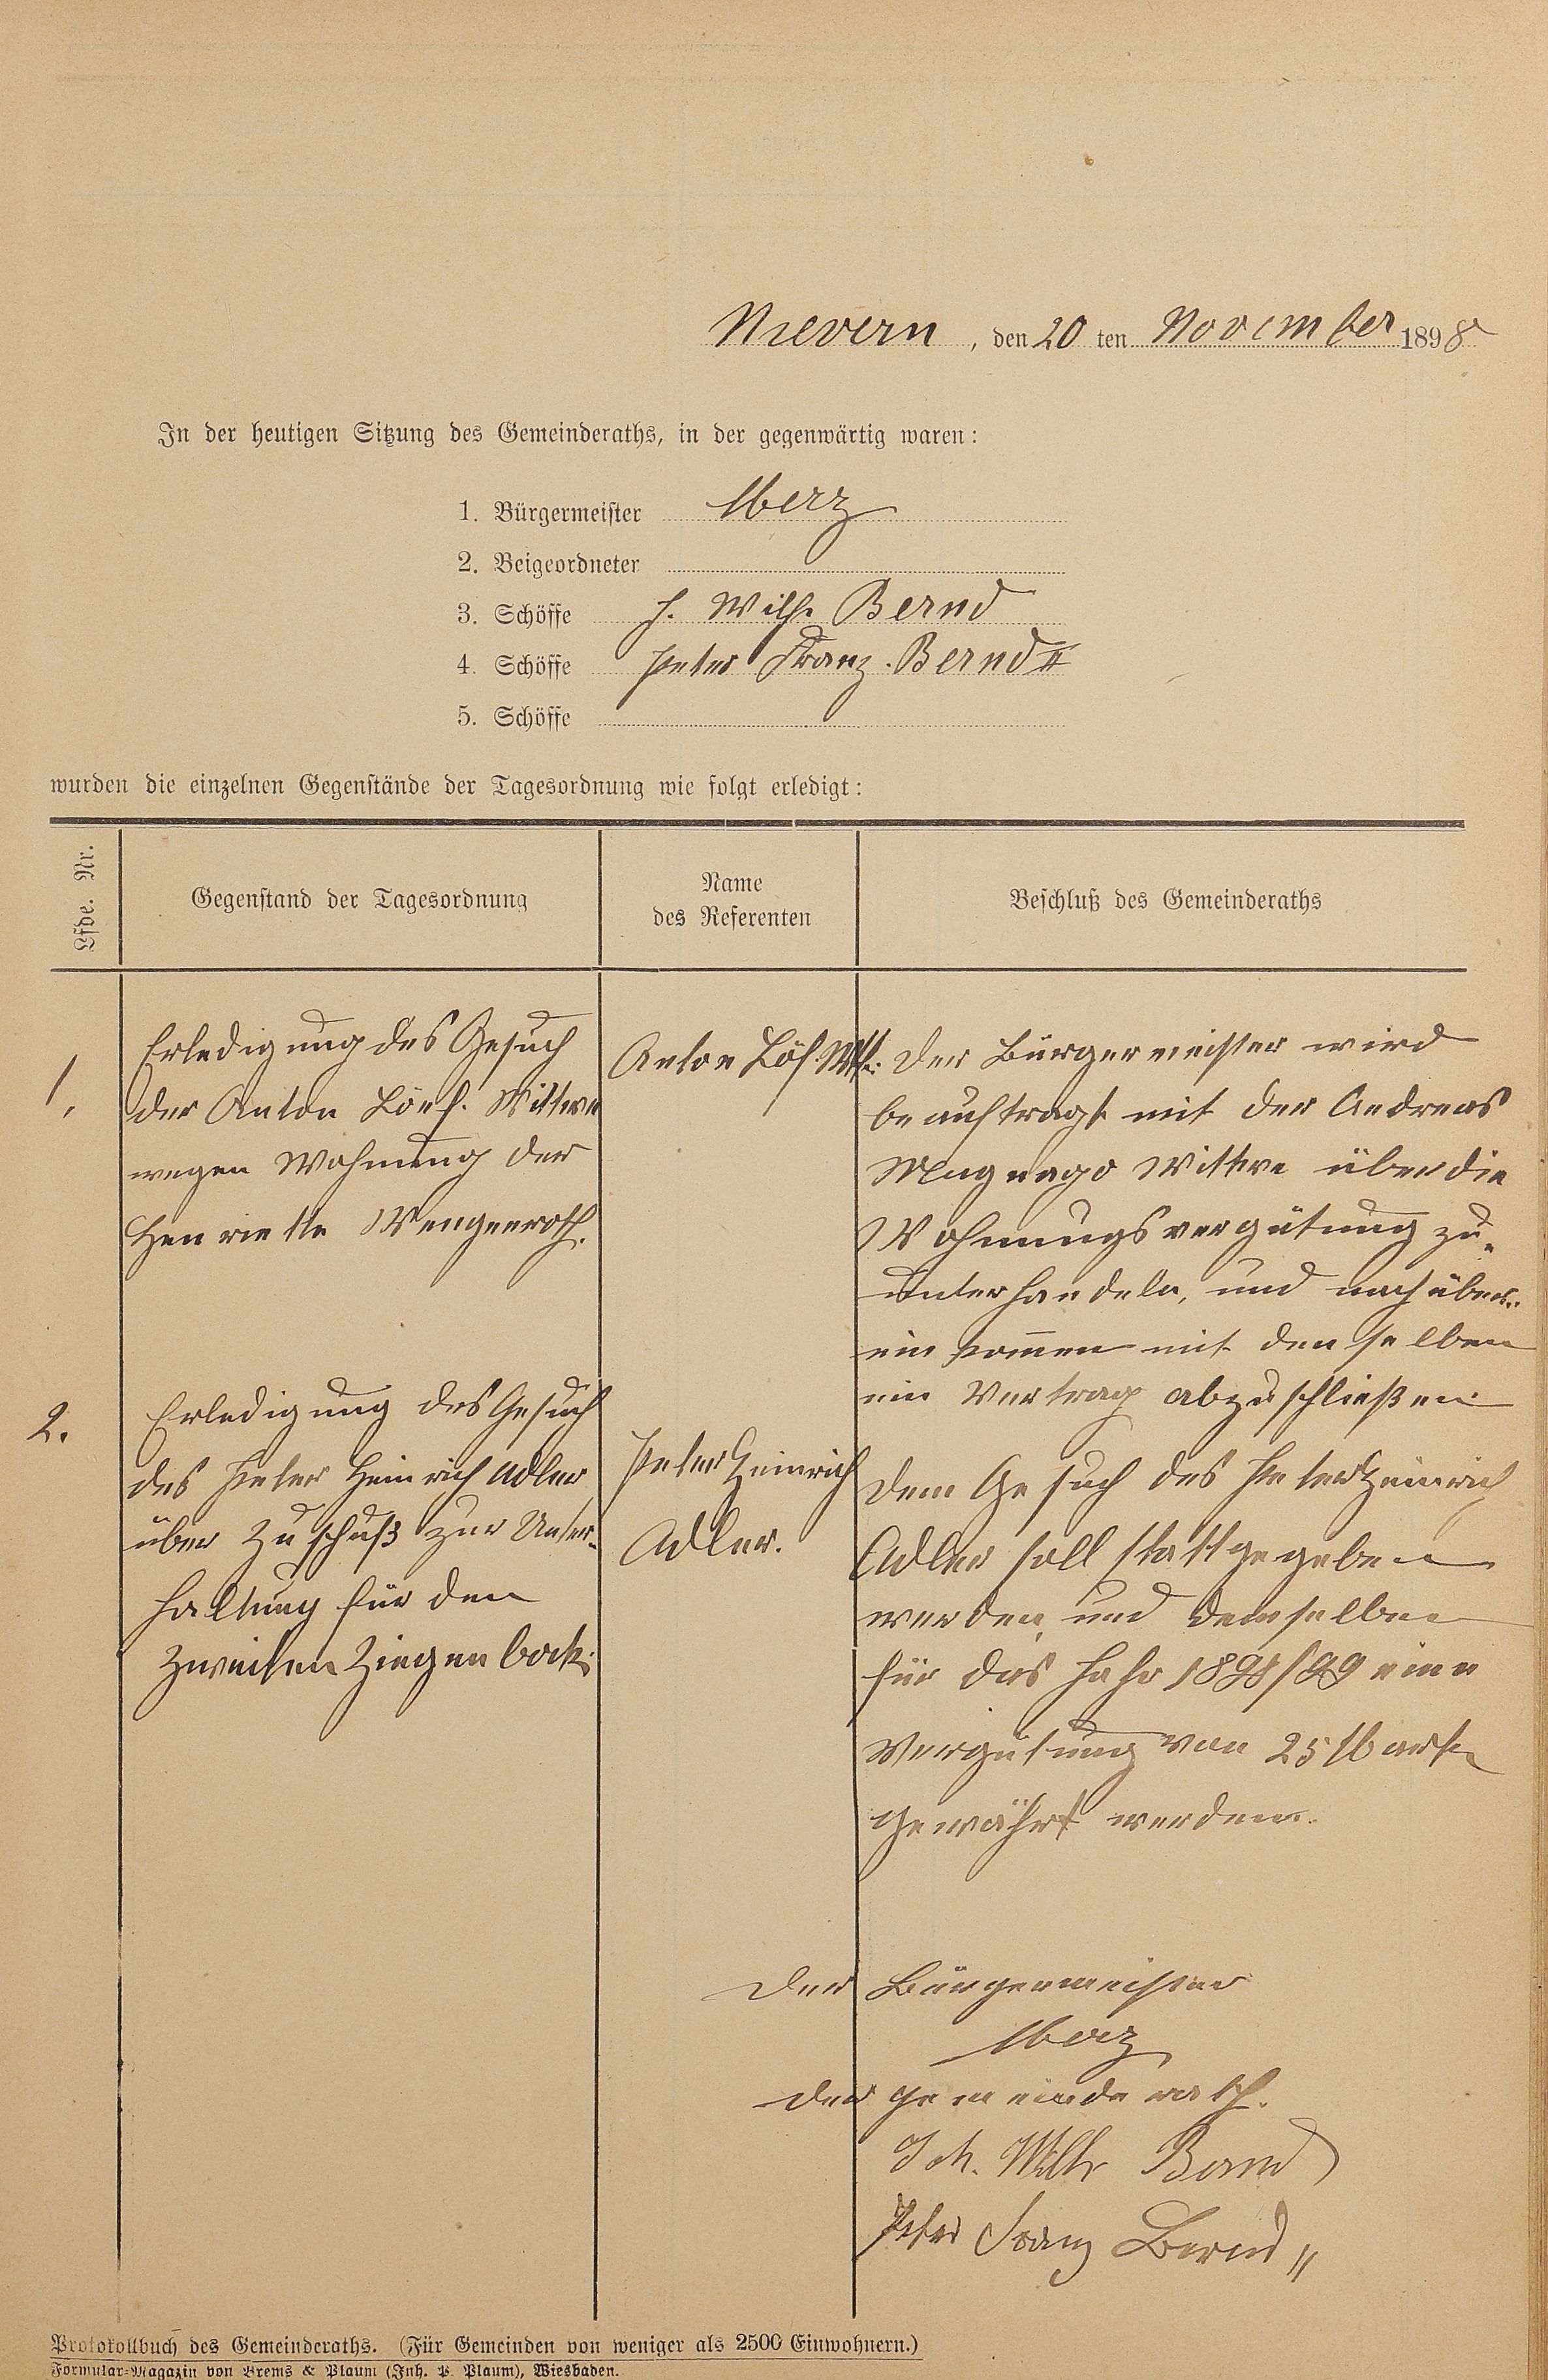 Nievern, den 20 ten November 1898
In der heutigen Sitzung des Gemeinderaths, in der gegenwärtig waren:
1. Bürgermeister Merz
2. Beigeordneter
3. Schöffe J. Wilh. Bernd
4. Schöffe Peter Franz. Bernd II
5. Schöffe
wurden die einzelnen Gegenstände der Tagesordnung wie folgt erledigt:
Lfde. Nr.
Gegenstand der Tagesordnung
Name
des Referenten
Beschluß des Gemeinderaths
1.
Erledigung des Gesuch
der Anton Wittwe
wegen Wohnung der
Henriette Wengenroth.
Anton
Der Bürgermeister wird
beauftragt mit der Andreas
Magnago Wittwe über die
Wohnungsvergütung zu
unterhandeln, und nach über-
ein kommen mit denselben
ein Vertrag abzuschließen
2.
Erledigung des Gesuch
des Peter Heinrich Adler
über Zuschuß zur Unter-
haltung für den
zweiten Ziegenbock.
Peter Heinrich
Adler.
Dem Gesuch des Peter Heinrich
Adler soll stattgegeben
werden, und demselben
für das Jahr 1898/99 eine
Vergütung von 25 Mark
gewährt werden.
Der Bürgermeister
Merz
Der Gemeinderath.
Joh. Wilh Bernd
Peter Franz Bernd II
Protokollbuch des Gemeinderaths. (Für Gemeinden von weniger als 2500 Einwohnern.)
Formular-Magazin von Brems & Plaum (Inh. P. Plaum), Wiesbaden.